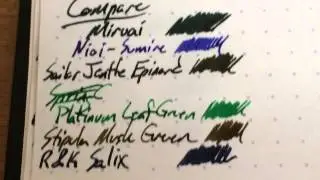 Compare
Mirvai
Nioi-Sumire
Sailor Jentle Epinard
Platinum Leaf Green
Stipula Musk Green
R&K Salix